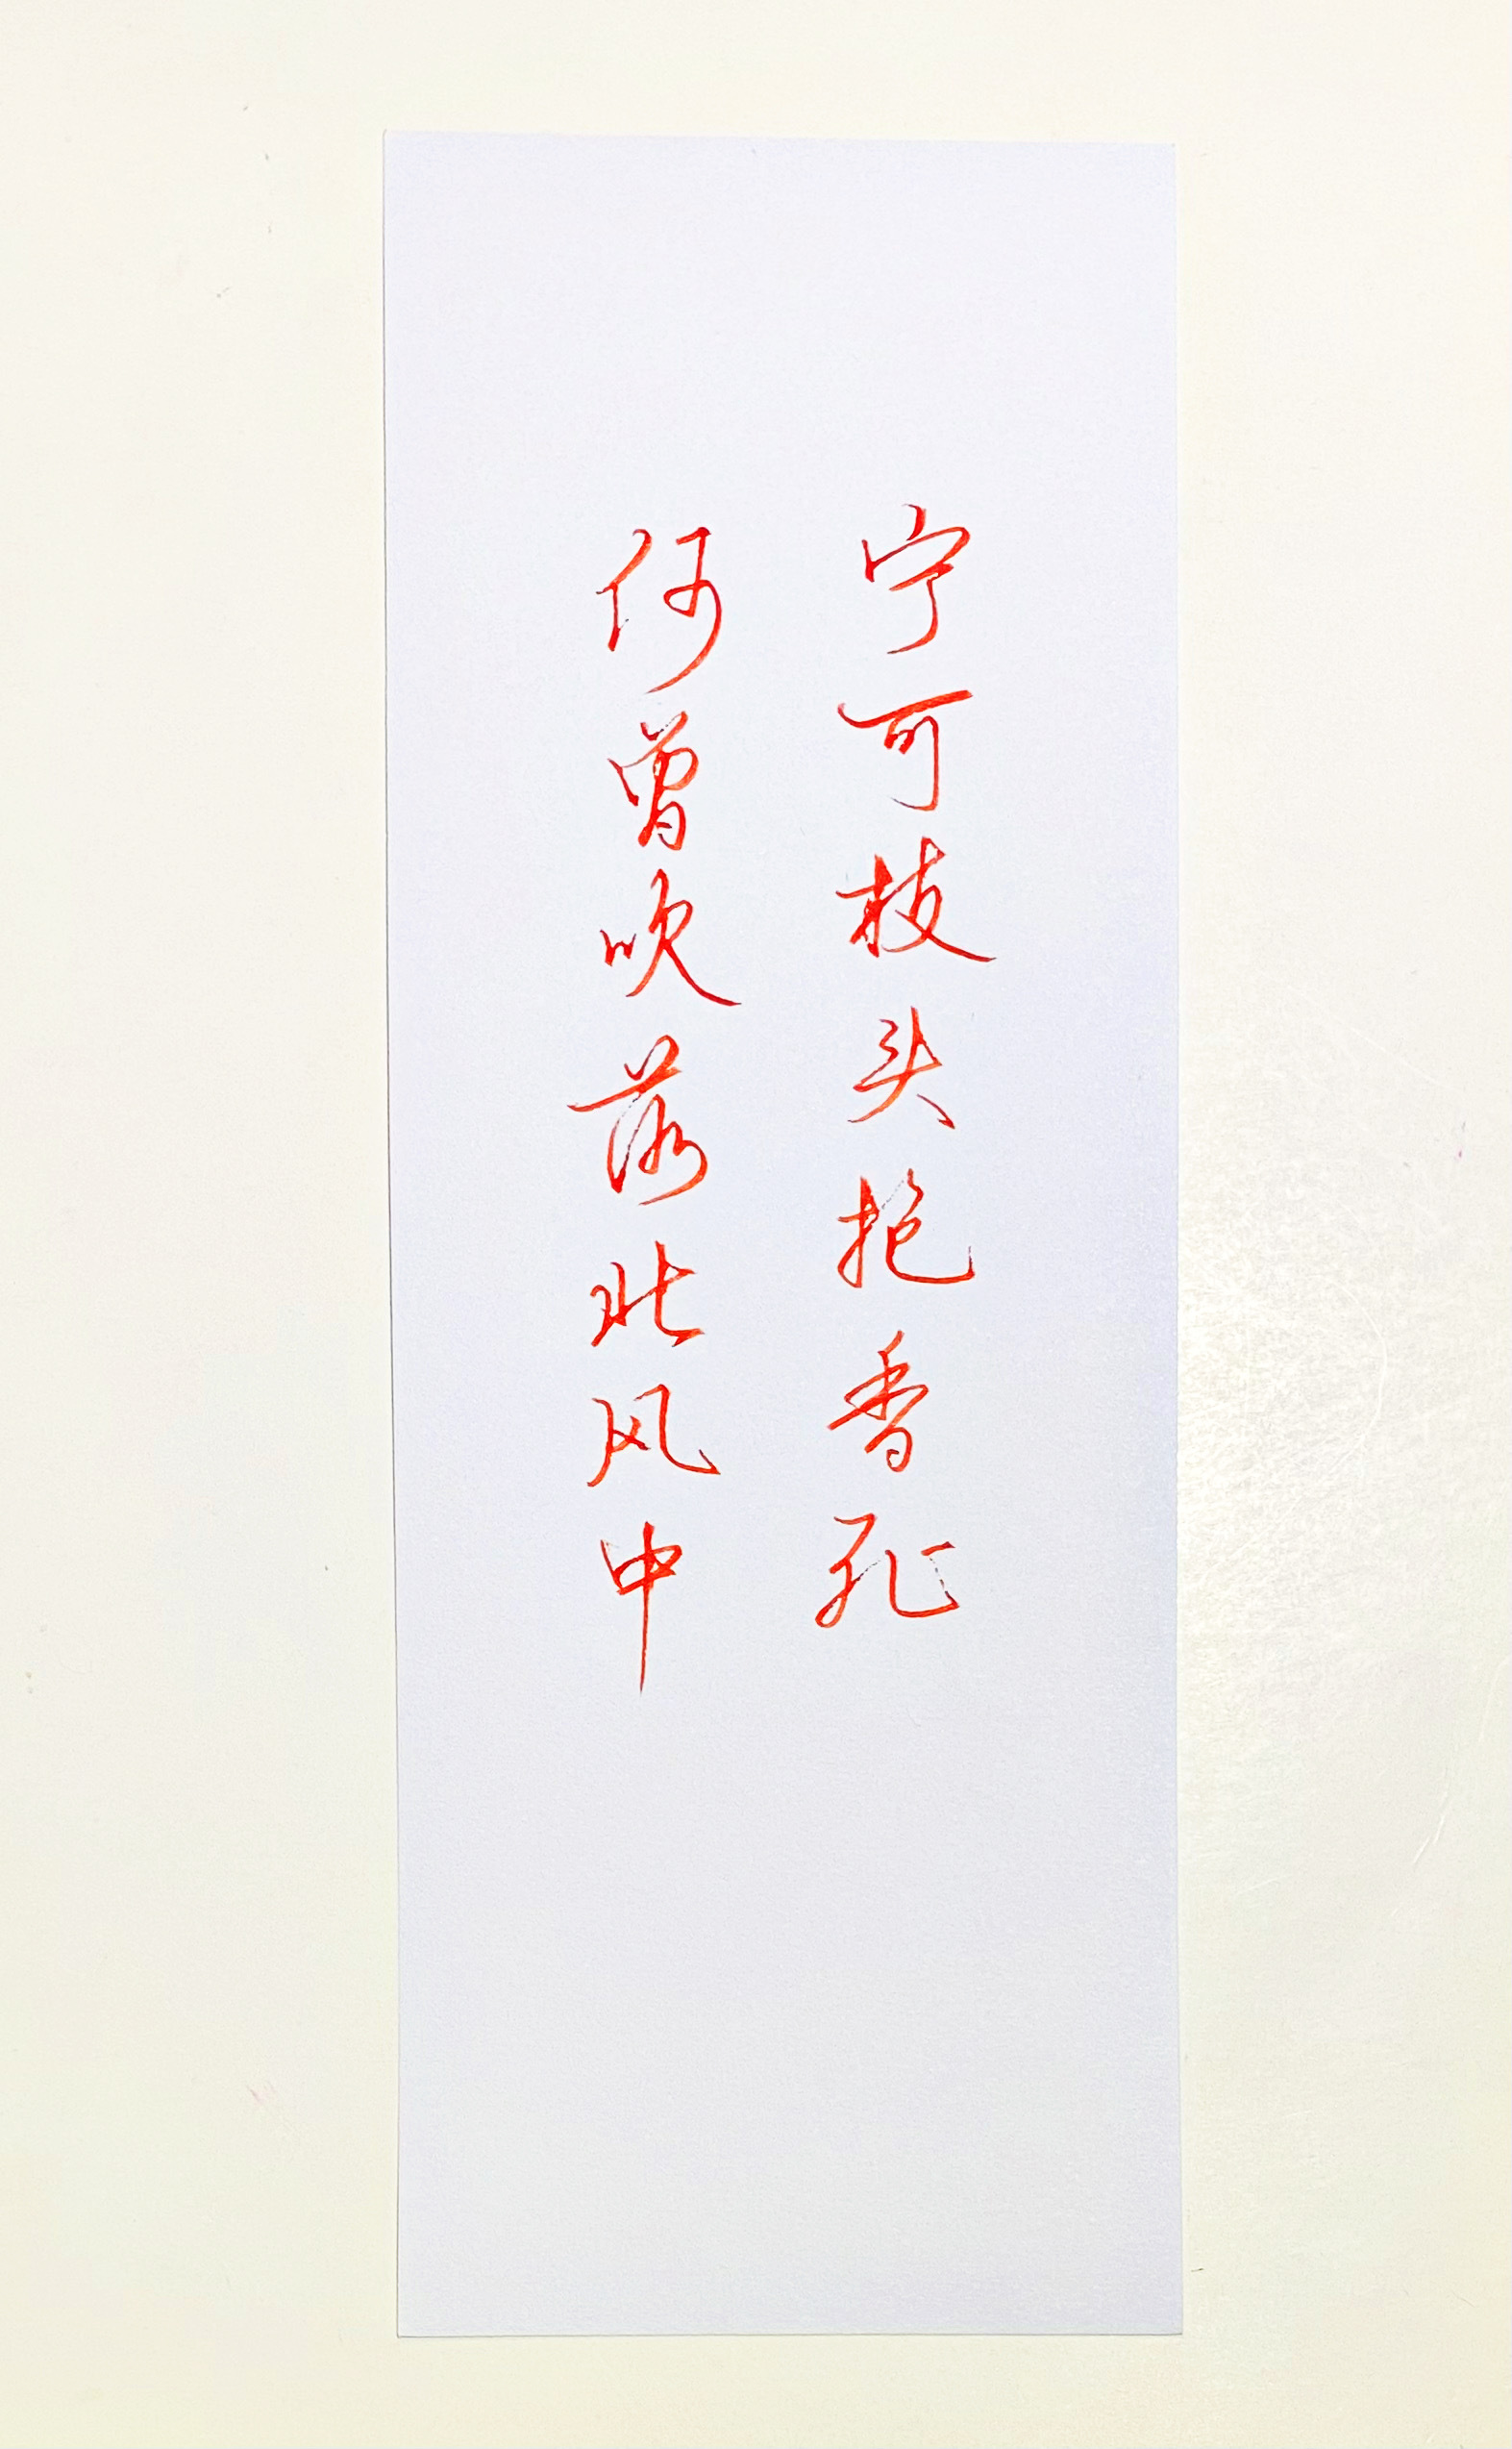 宁可枝头抱香死
何曾吹落北风中